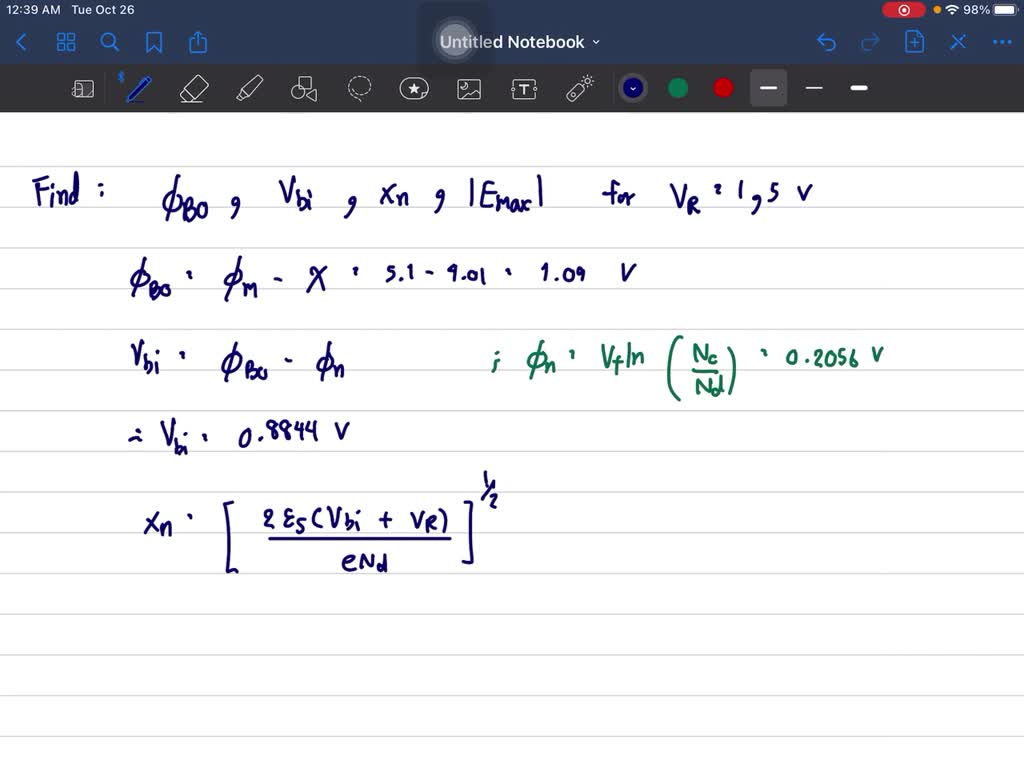 12:39 AM Tue Oct 26
98%
Untitled Notebook
Find : ϕBO , Vbi , xn , |Emax| for VR = 1, 5 V
ϕBO = ϕM - X = 5.1 - 4.01 = 1.09 V
Vbi = ϕBO - ϕn ; ϕn = Vt ln (Nc/Nd) = 0.2056 V
∴ Vbi = 0.8844 V
xn = [2εs(Vbi + VR)/eNd]^1/2